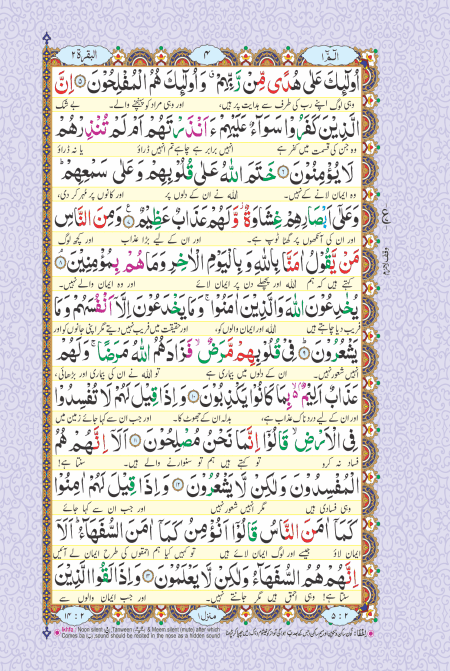 الٓمّٓ ١ ٤ البقرة ٢
اُولٰٓئِكَ عَلٰى هُدًى مِّنْ رَّبِّهِمْ ۗ وَاُولٰٓئِكَ هُمُ الْمُفْلِحُوْنَ ۝٥ اِنَّ
وہی لوگ اپنے رب کی طرف سے ہدایت پر ہیں، اور وہی مراد کو پہنچنے والے۔ بے شک
الَّذِيْنَ كَفَرُوْا سَوَآءٌ عَلَيْهِمْ ءَاَنْذَرْتَهُمْ اَمْ لَمْ تُنْذِرْهُمْ
وہ جن کی قسمت میں کفر ہے انہیں برابر ہے چاہے تم انہیں ڈراؤ یا نہ ڈراؤ
لَا يُؤْمِنُوْنَ ۝٦ خَتَمَ اللّٰهُ عَلٰى قُلُوْبِهِمْ وَعَلٰى سَمْعِهِمْ ؕ
وہ ایمان لانے کے نہیں۔ اللہ نے ان کے دلوں پر اور کانوں پر مہر کر دی،
وَعَلٰٓى اَبْصَارِهِمْ غِشَاوَةٌ ؗ وَّلَهُمْ عَذَابٌ عَظِيْمٌ ۝٧ وَمِنَ النَّاسِ
اور ان کی آنکھوں پر گھٹا ٹوپ ہے۔ اور ان کے لیے بڑا عذاب اور کچھ لوگ
مَنْ يَّقُوْلُ اٰمَنَّا بِاللّٰهِ وَبِالْيَوْمِ الْاٰخِرِ وَمَا هُمْ بِمُؤْمِنِيْنَ ۝٨
کہتے ہیں کہ ہم اللہ اور پچھلے دن پر ایمان لائے اور وہ ایمان والے نہیں۔
يُخٰدِعُوْنَ اللّٰهَ وَالَّذِيْنَ اٰمَنُوْا ۚ وَمَا يَخْدَعُوْنَ اِلَّآ اَنْفُسَهُمْ وَمَا
فریب دیا چاہتے ہیں اللہ اور ایمان والوں کو، اور حقیقت میں فریب نہیں دیتے مگر اپنی جانوں کو اور
يَشْعُرُوْنَ ۝٩ فِيْ قُلُوْبِهِمْ مَّرَضٌ ۙ فَزَادَهُمُ اللّٰهُ مَرَضًا ۚ وَلَهُمْ
انہیں شعور نہیں۔ ان کے دلوں میں بیماری ہے تو اللہ نے ان کی بیماری اور بڑھائی،
عَذَابٌ اَلِيْمٌ ۢ ۙ بِمَا كَانُوْا يَكْذِبُوْنَ ۝١٠ وَاِذَا قِيْلَ لَهُمْ لَا تُفْسِدُوْا
اور ان کے لیے درد ناک عذاب ہے، بدلہ ان کے جھوٹ کا۔ اور جب ان سے کہا جائے زمین میں
فِي الْاَرْضِ ۙ قَالُوْٓا اِنَّمَا نَحْنُ مُصْلِحُوْنَ ۝١١ اَلَآ اِنَّهُمْ هُمُ
فساد نہ کرو تو کہتے ہیں ہم تو سنوارنے والے ہیں۔ سنتا ہے!
الْمُفْسِدُوْنَ وَلٰكِنْ لَّا يَشْعُرُوْنَ ۝١٢ وَاِذَا قِيْلَ لَهُمْ اٰمِنُوْا
وہی فسادی ہیں مگر انہیں شعور نہیں اور جب ان سے کہا جائے
كَمَآ اٰمَنَ النَّاسُ قَالُوْٓا اَنُؤْمِنُ كَمَآ اٰمَنَ السُّفَهَآءُ ؕ اَلَآ
ایمان لاؤ جیسے اور لوگ ایمان لائے ہیں تو کہیں کیا ہم احمقوں کی طرح ایمان لے آئیں
اِنَّهُمْ هُمُ السُّفَهَآءُ وَلٰكِنْ لَّا يَعْلَمُوْنَ ۝١٣ وَاِذَا لَقُوا الَّذِيْنَ
سنتا ہے! وہی احمق ہیں مگر جانتے نہیں۔ اور جب ایمان والوں سے
٢ : ٥ منزل ١ ٢ : ١٤
Ikhfa : Noon silent نْ, Tanween & Meem silent (mute) after which
Comes ب sound should be rooted in the nose as a hidden sound